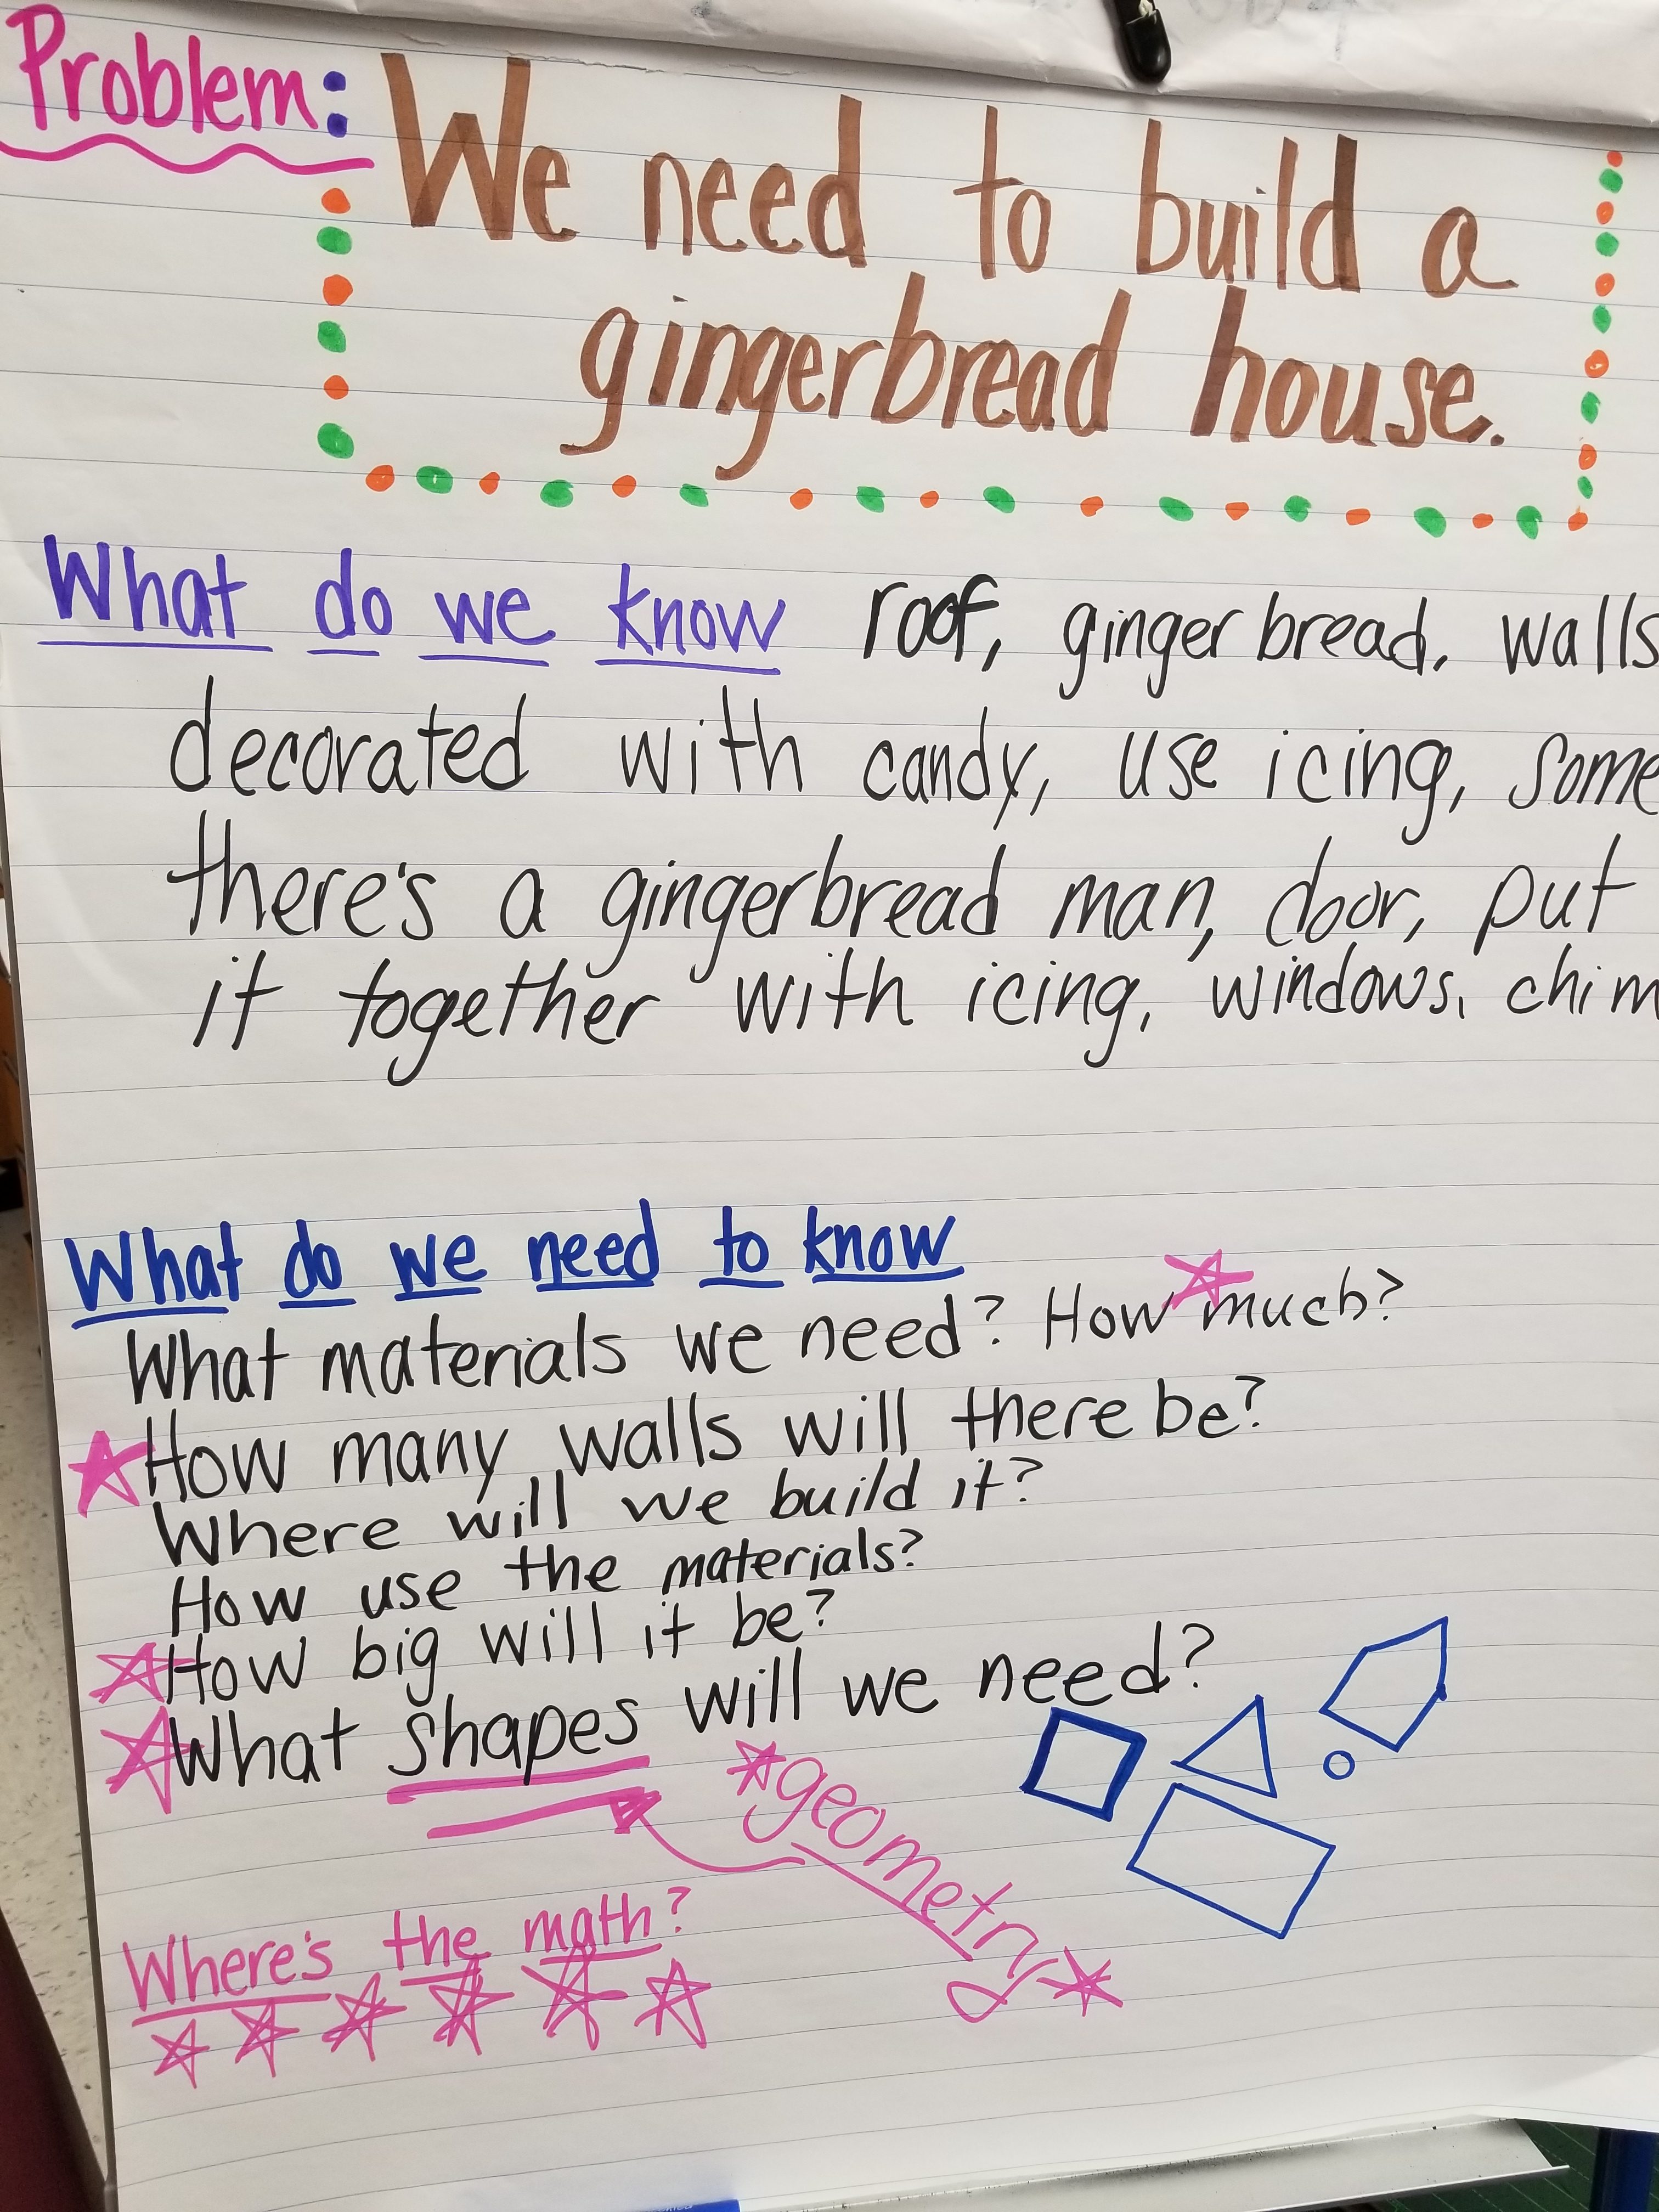 Problem: We need to build a
gingerbread house.
What do we know roof, gingerbread, walls
decorated with candy, use icing, some
there's a gingerbread man, door, put
it together with icing, windows, chim
What do we need to know
What materials we need? How much?
How many walls will there be?
Where will we build it?
How use the materials?
How big will it be?
What shapes will we need?
*geometry*
Where's the math?